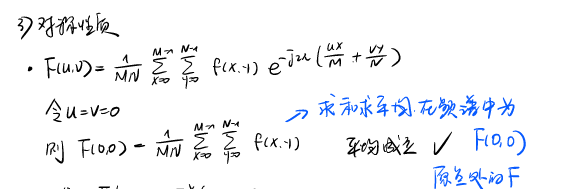 3) 对称性质
• F(u,v) = 1/MN ∑_{x=0}^{M-1} ∑_{y=0}^{N-1} f(x,y) e^{-j2π(ux/M + vy/N)}
令u=v=0
则 F(0,0) = 1/MN ∑_{x=0}^{M-1} ∑_{y=0}^{N-1} f(x,y)
→ 求和求平均.在频谱中为
平均成立 ✓ F(0,0)
原点处的F